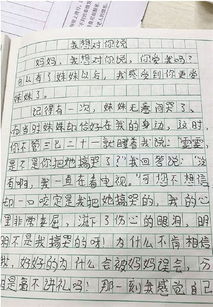 我想对你说
妈妈，我想对你说，你爱我吗？
自从有了妹妹以后，我感受到你更爱
妹妹了。
记得有一次，妹妹无意间哭了，
而当时妹妹的恰好在我的身边，这时，
你不管三七二十一就瞪着我说：“
是不是你把她搞哭了？”我回答说：“没
有啊，我一直在看电视。”可您不想信
一口咬定是我把她搞哭的。我的心
里非常委屈，流下了伤心的眼泪，明明
不是我搞哭的呀！为什么不肯相信
我，好好的为什么会被妈妈误会，
是着不讲礼吗！那一刻我感觉自己